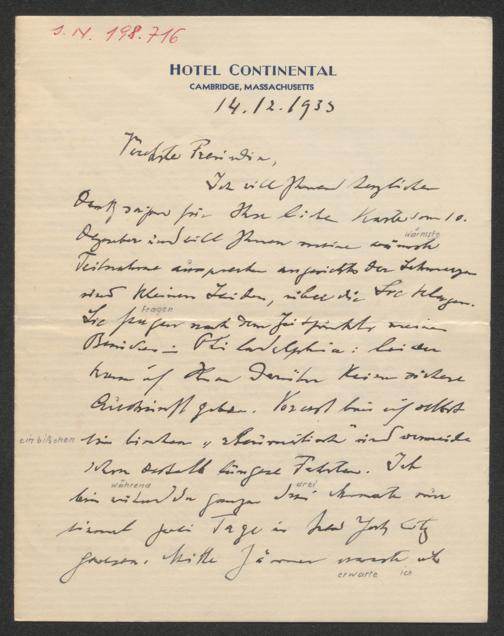 J. N. 198.716
HOTEL CONTINENTAL
CAMBRIDGE, MASSACHUSETTS
14.12.1933
Verehrte Freundin,
Ich will Ihnen herzlichen
Dank sagen für Ihre liebe Karte vom 10.
wärmste
Dezember und will Ihnen meine wärmste
Teilnahme aussprechen angesichts der Schmerzen
und kleinen Leiden, über die Sie klagen.
fragen
Sie fragen nach dem Zeitpunkte meines
Besuches in Philadelphia: leider
kann ich Ihnen darüber keine sichere
Auskunft geben. Vorerst bin ich selbst
ein bißchen
ein bischen „rheumatisch" und vermeide
schon deshalb längere Fahrten. Ich
während drei
bin während der ganzen drei Monate nur
einmal zwei Tage in New York City
gewesen. Mitte Jänner erwarte ich
erwarte ich